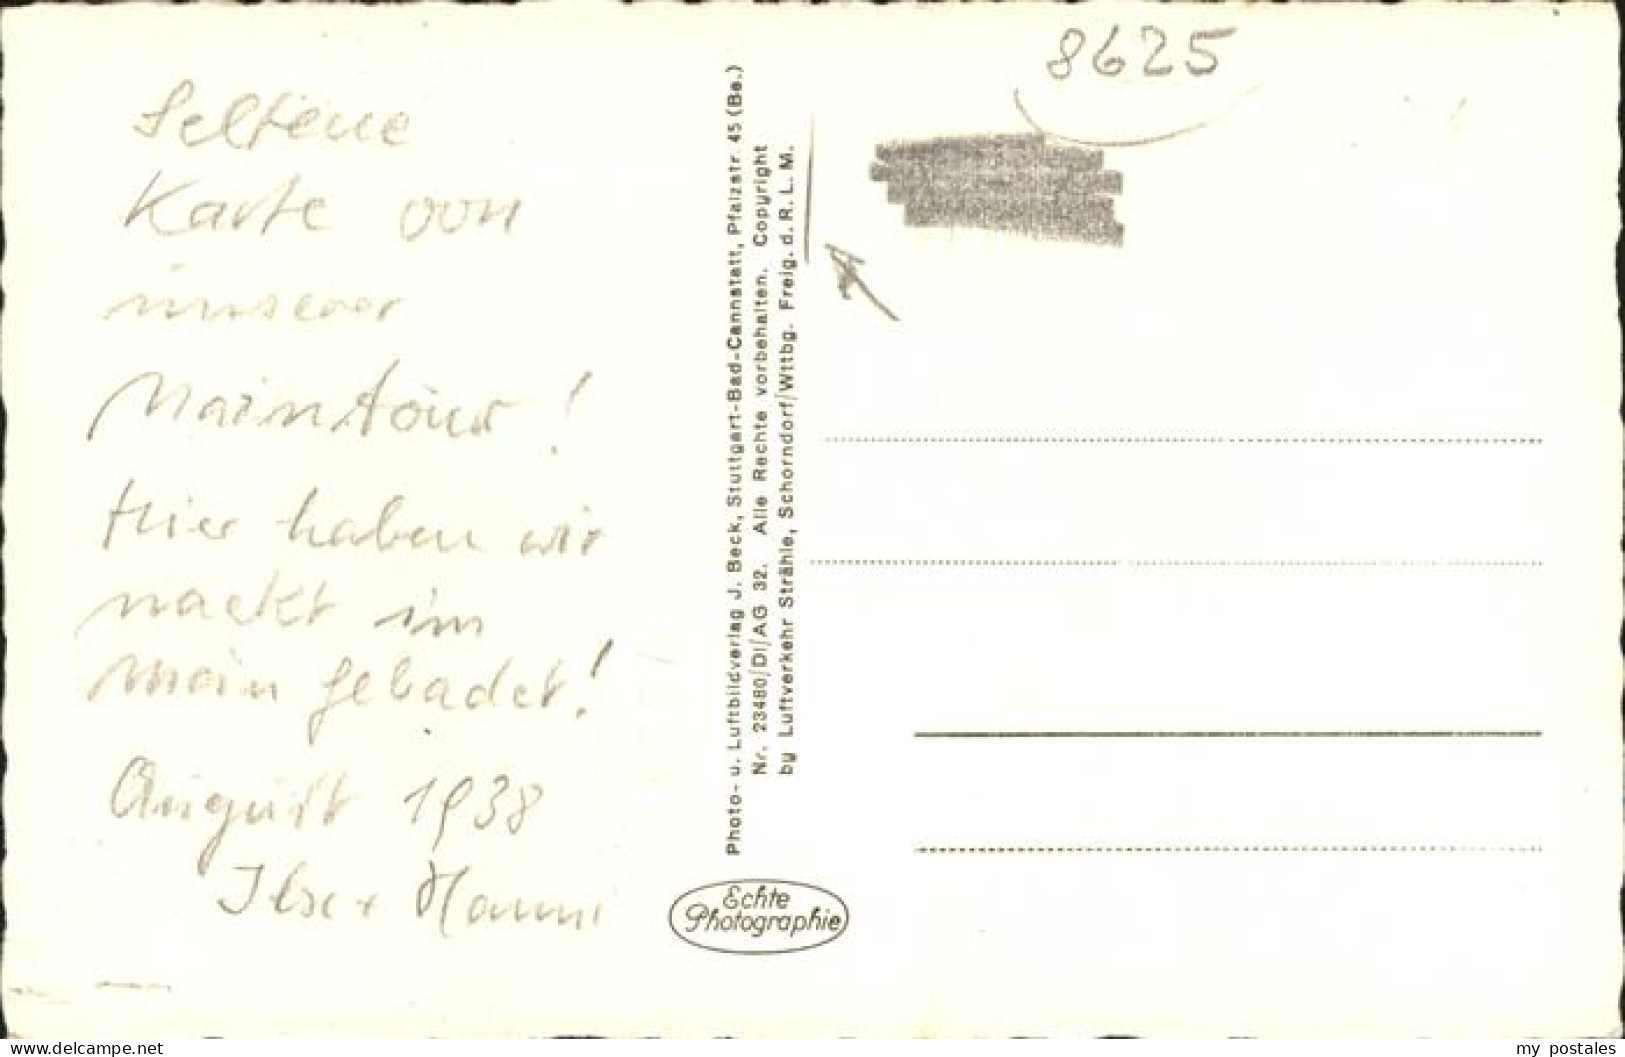 8625
Seltene
Karte von
unserer
Maintour!
Hier haben wir
nackt im
Main gebadet!
August 1938
Ilse + Hanni
Photo- u. Luftbildverlag J. Beck, Stuttgart-Bad-Cannstatt, Pfalzstr. 45 (Be.)
Nr. 23480/DI/AG 32. Alle Rechte vorbehalten. Copyright
by Luftverkehr Strähle, Schorndorf/Wttbg. Freig. d. R. L. M.
Echte
Photographie
www.delcampe.net
my_postales